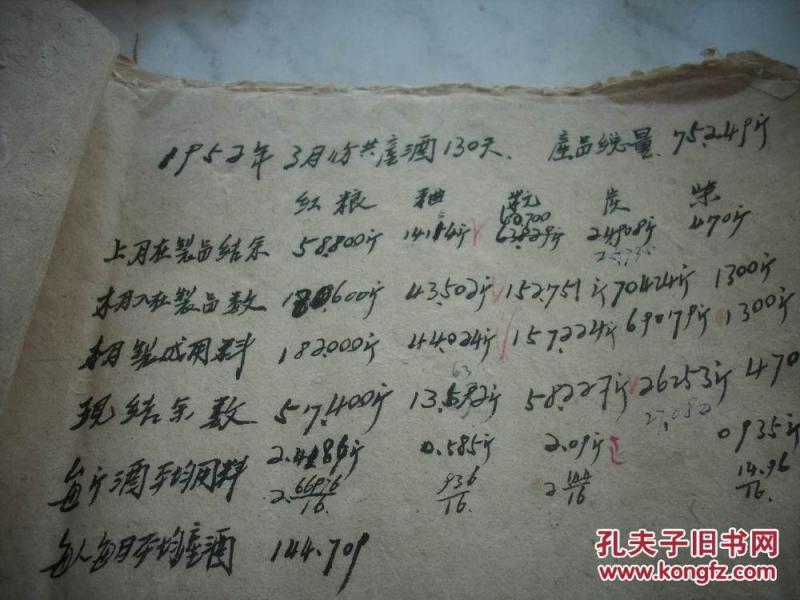 1952年 3月份共产酒130天. 產品總量. 75.249斤
红粮 粬 糠 炭 柴
60.700
上月在製品结余 58.800斤 14.114斤 63.829斤 24.908斤 470斤
25.735
本月入在製品数 180.600斤 43.502斤 152.751斤 70424斤 1300斤
本月製成用料 182.000斤 44.024斤 157.224斤 69079斤 1300斤
63
现结余数 57.400斤 13.592斤 58.227斤 26253斤 470
27.080
每斤酒平均用料 2.4186斤 0.585斤 2.09斤 0935斤
2.66976/16. 936/16. 2 144/16 14.96/16.
每人每日平均產酒 144.709
孔夫子旧书网
www.kongfz.com